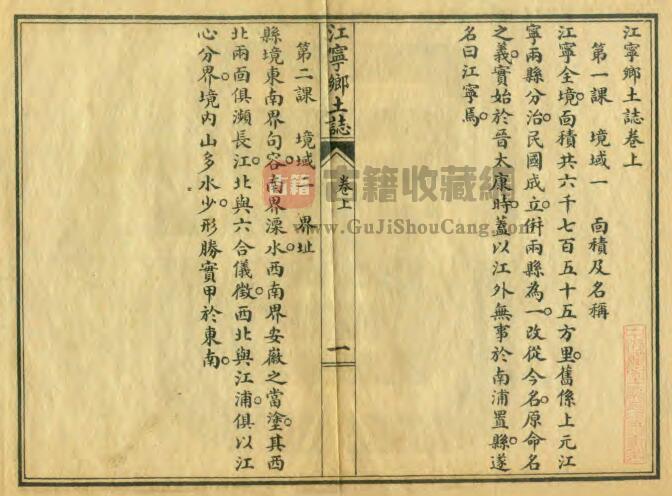 江寧鄉土誌卷上
第一課　境域一　面積及名稱
江寧全境面積共六千七百五十五方里。舊係上元江
寧兩縣分治。民國成立。併兩縣為一。改從今名。原命名
之義。實始於晉太康時。蓋以江外無事。於南浦置縣。遂
名曰江寧焉。
江寧鄉土誌
卷上
一
第二課　境域二　界址
縣境東南界句容。南界溧水。西南界安徽之當塗。其西
北兩面俱瀕長江。北與六合儀徵。西北與江浦。俱以江
心分界。境內山多水少。形勝實甲於東南。
古籍
古籍收藏網
www.GuJiShouCang.com